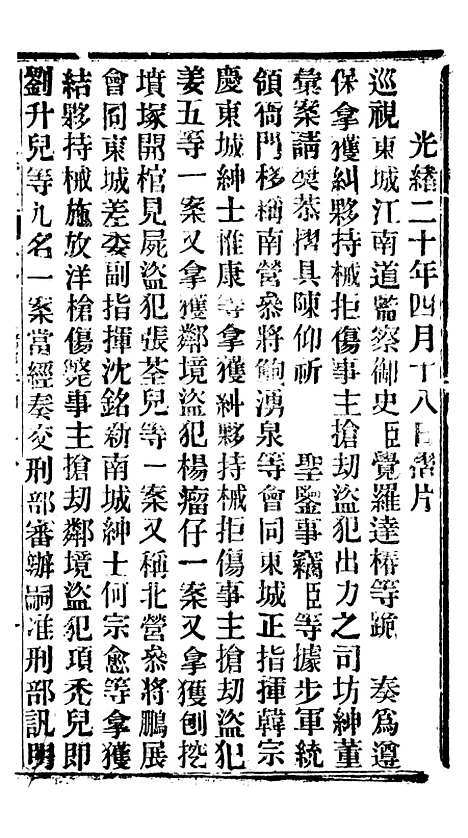 光緒二十年四月十八日摺片
巡視東城江南道監察御史臣覺羅達椿等跪　奏爲遵
保拿獲糾夥持械拒傷事主搶刧盜犯出力之司坊紳董
彙案請奬恭摺具陳仰祈　聖鑒事竊臣等據步軍統
領衙門移稱南營叅將鮑湧泉等會同東城正指揮韓宗
慶東城紳士惟康等拿獲糾夥持械拒傷事主搶刧盜犯
姜五等一案又拿獲鄰境盜犯楊瘤仔一案又拿獲刨挖
墳塚開棺見屍盜犯張荃兒等一案又稱北營叅將鵬展
會同東城差委副指揮沈銘新南城紳士何宗愈等拿獲
結夥持械施放洋槍傷斃事主搶刧鄰境盜犯項禿兒即
劉升兒等九名一案當經奏交刑部審辦嗣准刑部訊明